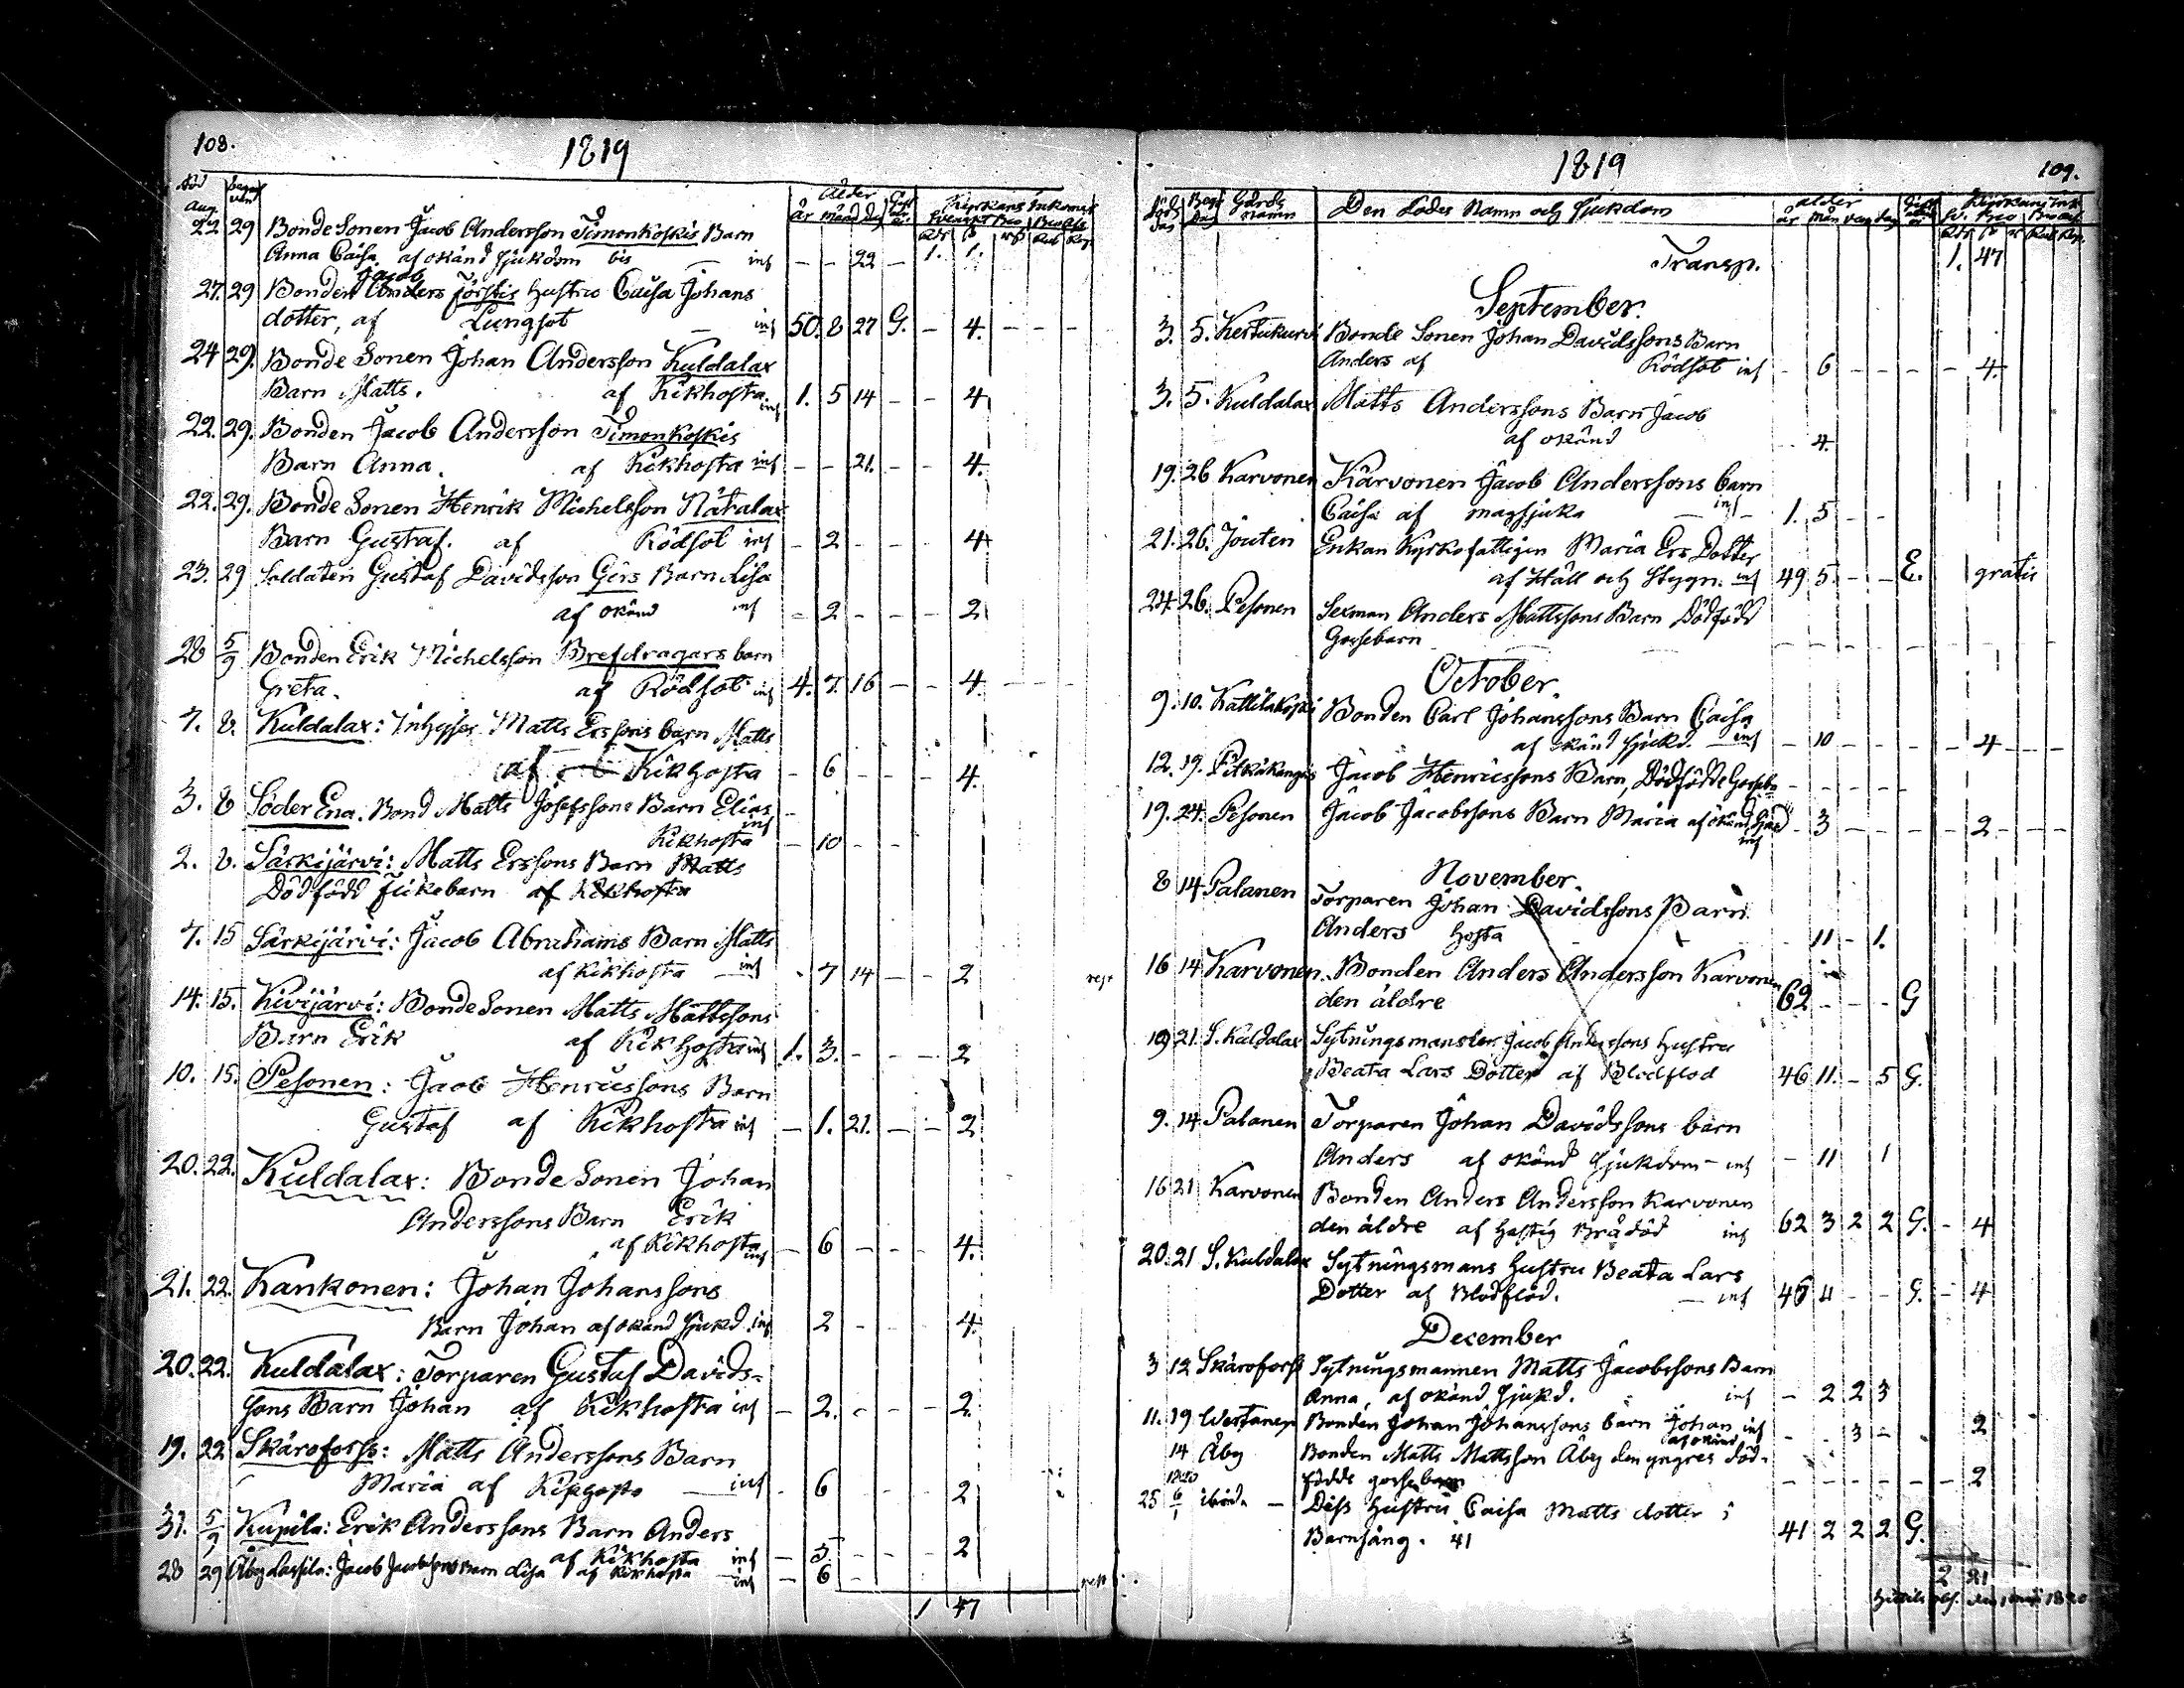 108.
1819
Ålder
Kyrkans Inkomst
År Mån Dag
22 29 Bonde Sonen Jacob Andersson Timonkoskis Barn
Anna Caisa, af okänd sjukdom bis — inf — — 22 — 1. 1.
Jacob
27. 29 Bonden Anders Jörstis Hustru Caisa Johans
dotter, af Lungsot — inf 50. 8 27 G. — 4. — — —
24 29. Bonde Sonen Johan Andersson Kuldalax
Barn Matts. af Kikhosta inf 1. 5 14 — — 4
22. 29. Bonden Jacob Andersson Timonkoskis
Barn Anna. af Kikhosta inf — — 21. — — 4.
22. 29. Bonde Sonen Henrik Michelsson Nätalax
Barn Gustaf. af Rödsot inf — 2 — — — 4
23. 29 Soldaten Gustaf Davidsson Girs Barn Lisa
af okänd inf — 2 — — — 2
28 5/9 Bonden Erik Michelsson Brefdragars barn
Greta. af Rödsot inf 4. 7. 16 — — 4. — — —
7. 8. Kuldalax: Inhyses Matts Erssons barn Matts
af Kikhosta — 6 — — — 4.
3. 8 Söder Ena. Bond Matts Josefssons Barn Elias
inf
Kikhosta — 10 — —
2. 8. Särkijärvi: Matts Erssons Barn Matts
Dödfödd flickebarn af Kikhosta
7. 15 Särkijärvi: Jacob Abrahams Barn Matts
af Kikhosta — inf . 7 14 — — 2
14. 15. Kivijärvi: Bonde Sonen Matts Mattssons
Barn Erik af Kikhosta inf 1. 3. — — — 2
10. 15. Pesonen: Jacob Henricssons Barn
Gustaf af Kikhosta inf — 1. 21. — — 2
20. 22. Kuldalax: Bonde Sonen Johan
Anderssons Barn Erik
af Kikhosta inf — 6 — — — 4.
21. 22. Kankonen: Johan Johanssons
Barn Johan af okänd sjukd. inf 2 — — — 4.
20. 22. Kuldalax: Torparen Gustaf Davids=
sons Barn Johan af Kikhosta inf — 2. — — — 2.
19. 22 Skäroforss: Matts Anderssons Barn
Maria af Kikhosta — inf . 6 2
31. 5/9 Kupila: Erik Anderssons Barn Anders
af Kikhosta inf — 5 — — — 2
28 29 Åby Lassila: Jacob Jacobssons Barn Lisa af Kikhosta — inf — 6 —
1 47
1819
109.
Gårds namn Den Dödes Namn och Sjukdom
Transp. 1. 47
September.
3. 5. Kertukurvi Bonde Sonen Johan Davidssons Barn
Anders af Rödsot inf — 6 — — — — 4.
3. 5. Kuldalax Matts Anderssons Barn Jacob
af okänd 4.
19. 26 Karvonen Karvonen Jacob Anderssons barn
Caisa af magsjuka — inf — 1. 5 — —
21. 26. Jouten Enkan Kyrkofattigen Maria Ers Dotter
af Håll och Stygn. inf 49 5. — — E. gratis
24. 26. Pesonen Sexman Anders Mattssons Barn Dödfödd
Gossebarn
October.
9. 10. Kattilakoski Bonden Carl Johanssons Barn Caisa
af okänd sjukd. — inf — 10 — — — — 4 — — —
12. 19. Pitkäkangas Jacob Henricssons Barn, Dödfödde Gosseb
19. 24. Pesonen Jacob Jacobssons Barn Maria af okänd sjukd — 3 — — — — 2 — — —
inf
November.
8 14 Palanen Torparen Johan Davidssons Barn
Anders Hosta 11 — 1.
16 14 Karvonen. Bonden Anders Andersson Karvonen
den äldre 62 — — — G
19 21. S. Kuldalax Sytningsmansten Jacob Anderssons Hustru
Beata Lars Dotter af Blodflod 46 11. — 5 G.
9. 14 Palanen Torparen Johan Davidssons barn
Anders af okänd sjukdom — inf — 11 1
16 21 Karvonen Bonden Anders Andersson Karvonen
den äldre af Hastig Brådöd inf 62 3 2 2 G. — 4
20. 21 S. Kuldalax Sytningsmans Hustru Beata Lars
Dotter af Blodflod. — inf 46 11 — — G. — 4
December
3 12 Skärofors Sytningsmannen Matts Jacobssons Barn
Anna, af okänd sjukd. inf — 2 2 3
11. 19. Westanen Bonden Johan Johanssons barn Johan inf — . 3 — . 2
af okänd
14 Åby Bonden Matts Mattsson Åby den yngres död-
födde gosse barn — — — — — — 2
1820
25 6/1 ibid. — Dess Hustru Caisa Matts dotter i
Barnsäng. 41 41 2 2 2 G.
2 21